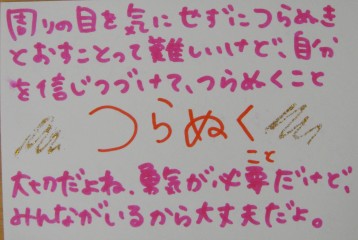 周りの目を気にせずにつらぬき
とおすことって難しいけど自分
を信じつづけて、つらぬくこと
つらぬく
こと
大切だよね、勇気が必要だけど、
みんながいるから大丈夫だよ。